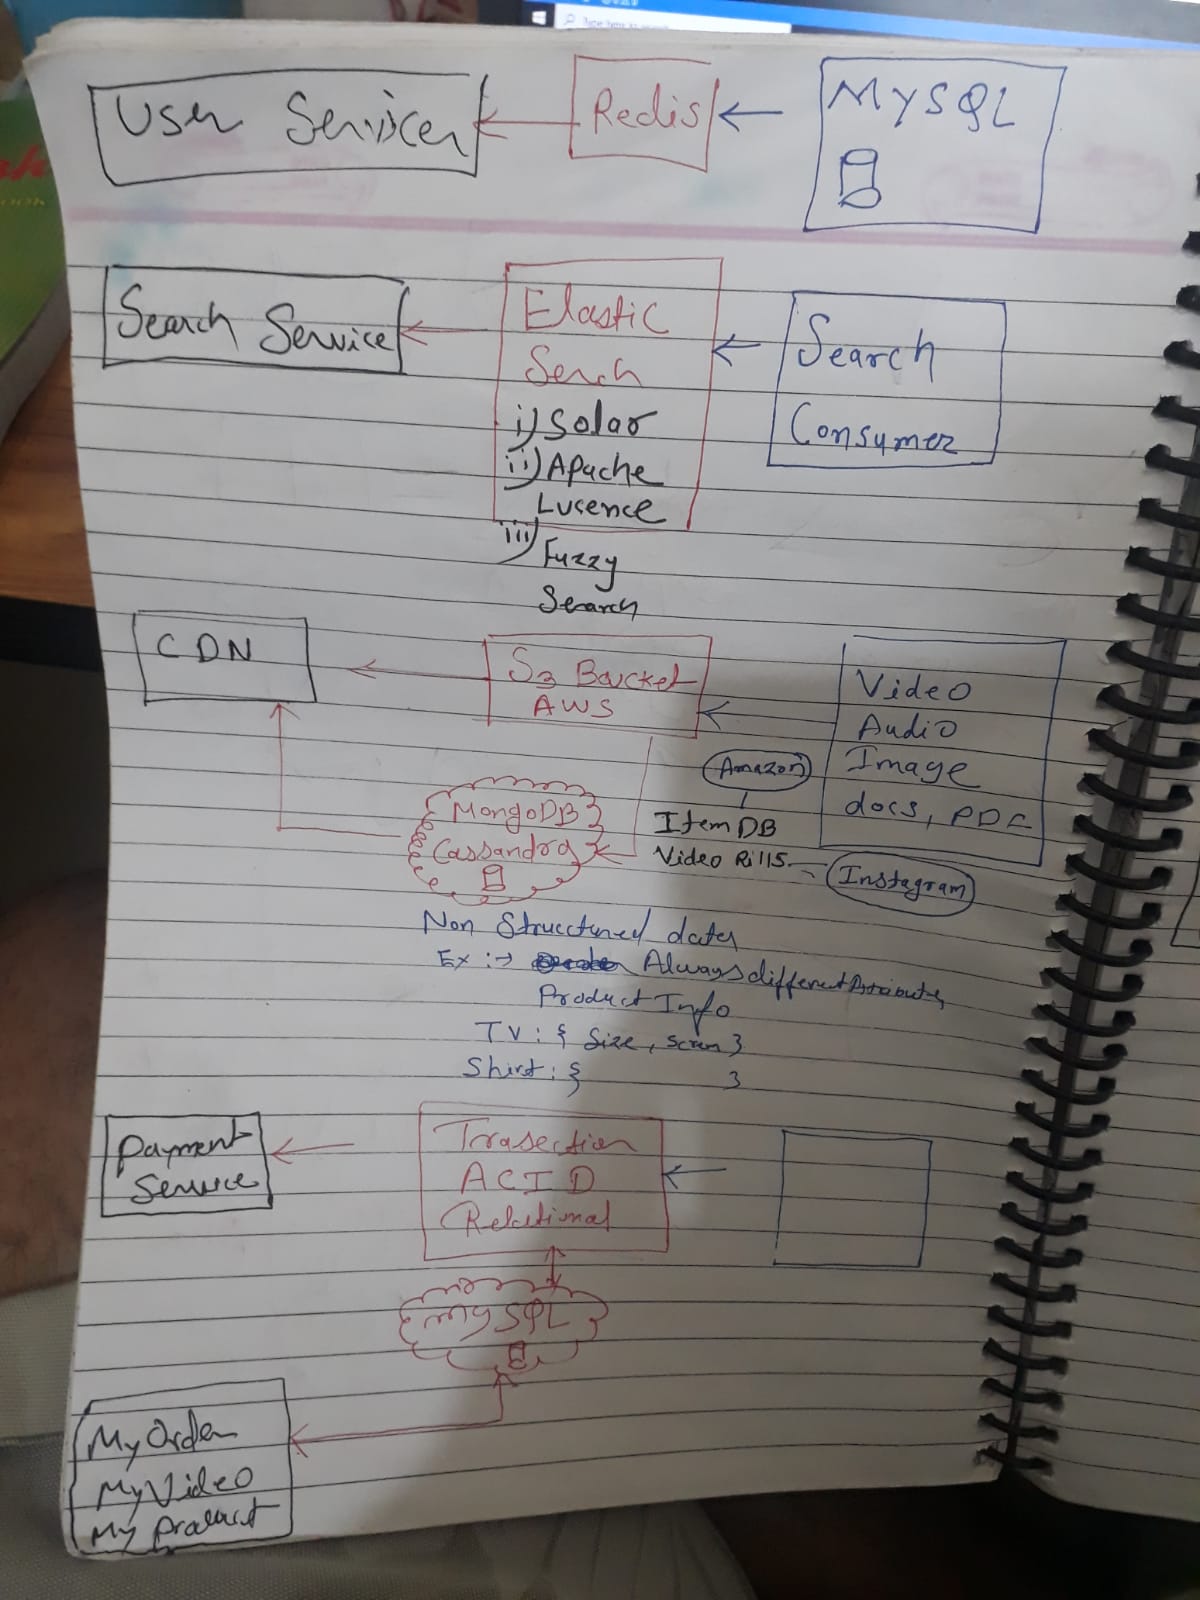 User Service
Redis
MySQL
Search Service
Elastic
Serch
i) Solar
ii) Apache
Lucence
iii) Fuzzy
Search
Search
Consumer
CDN
S3 Bucket
AWS
Video
Audio
Image
docs, PDF
Amazon
Item DB
Video Rills
Instagram
MongoDB
Cassandra
Non Structured data
Ex :→ Always different Attributes
Product Info
TV : { Size, Screen }
Shirt : { }
Payment
Service
Trasection
ACID
Relational
MySQL
My Order
My Video
My Product